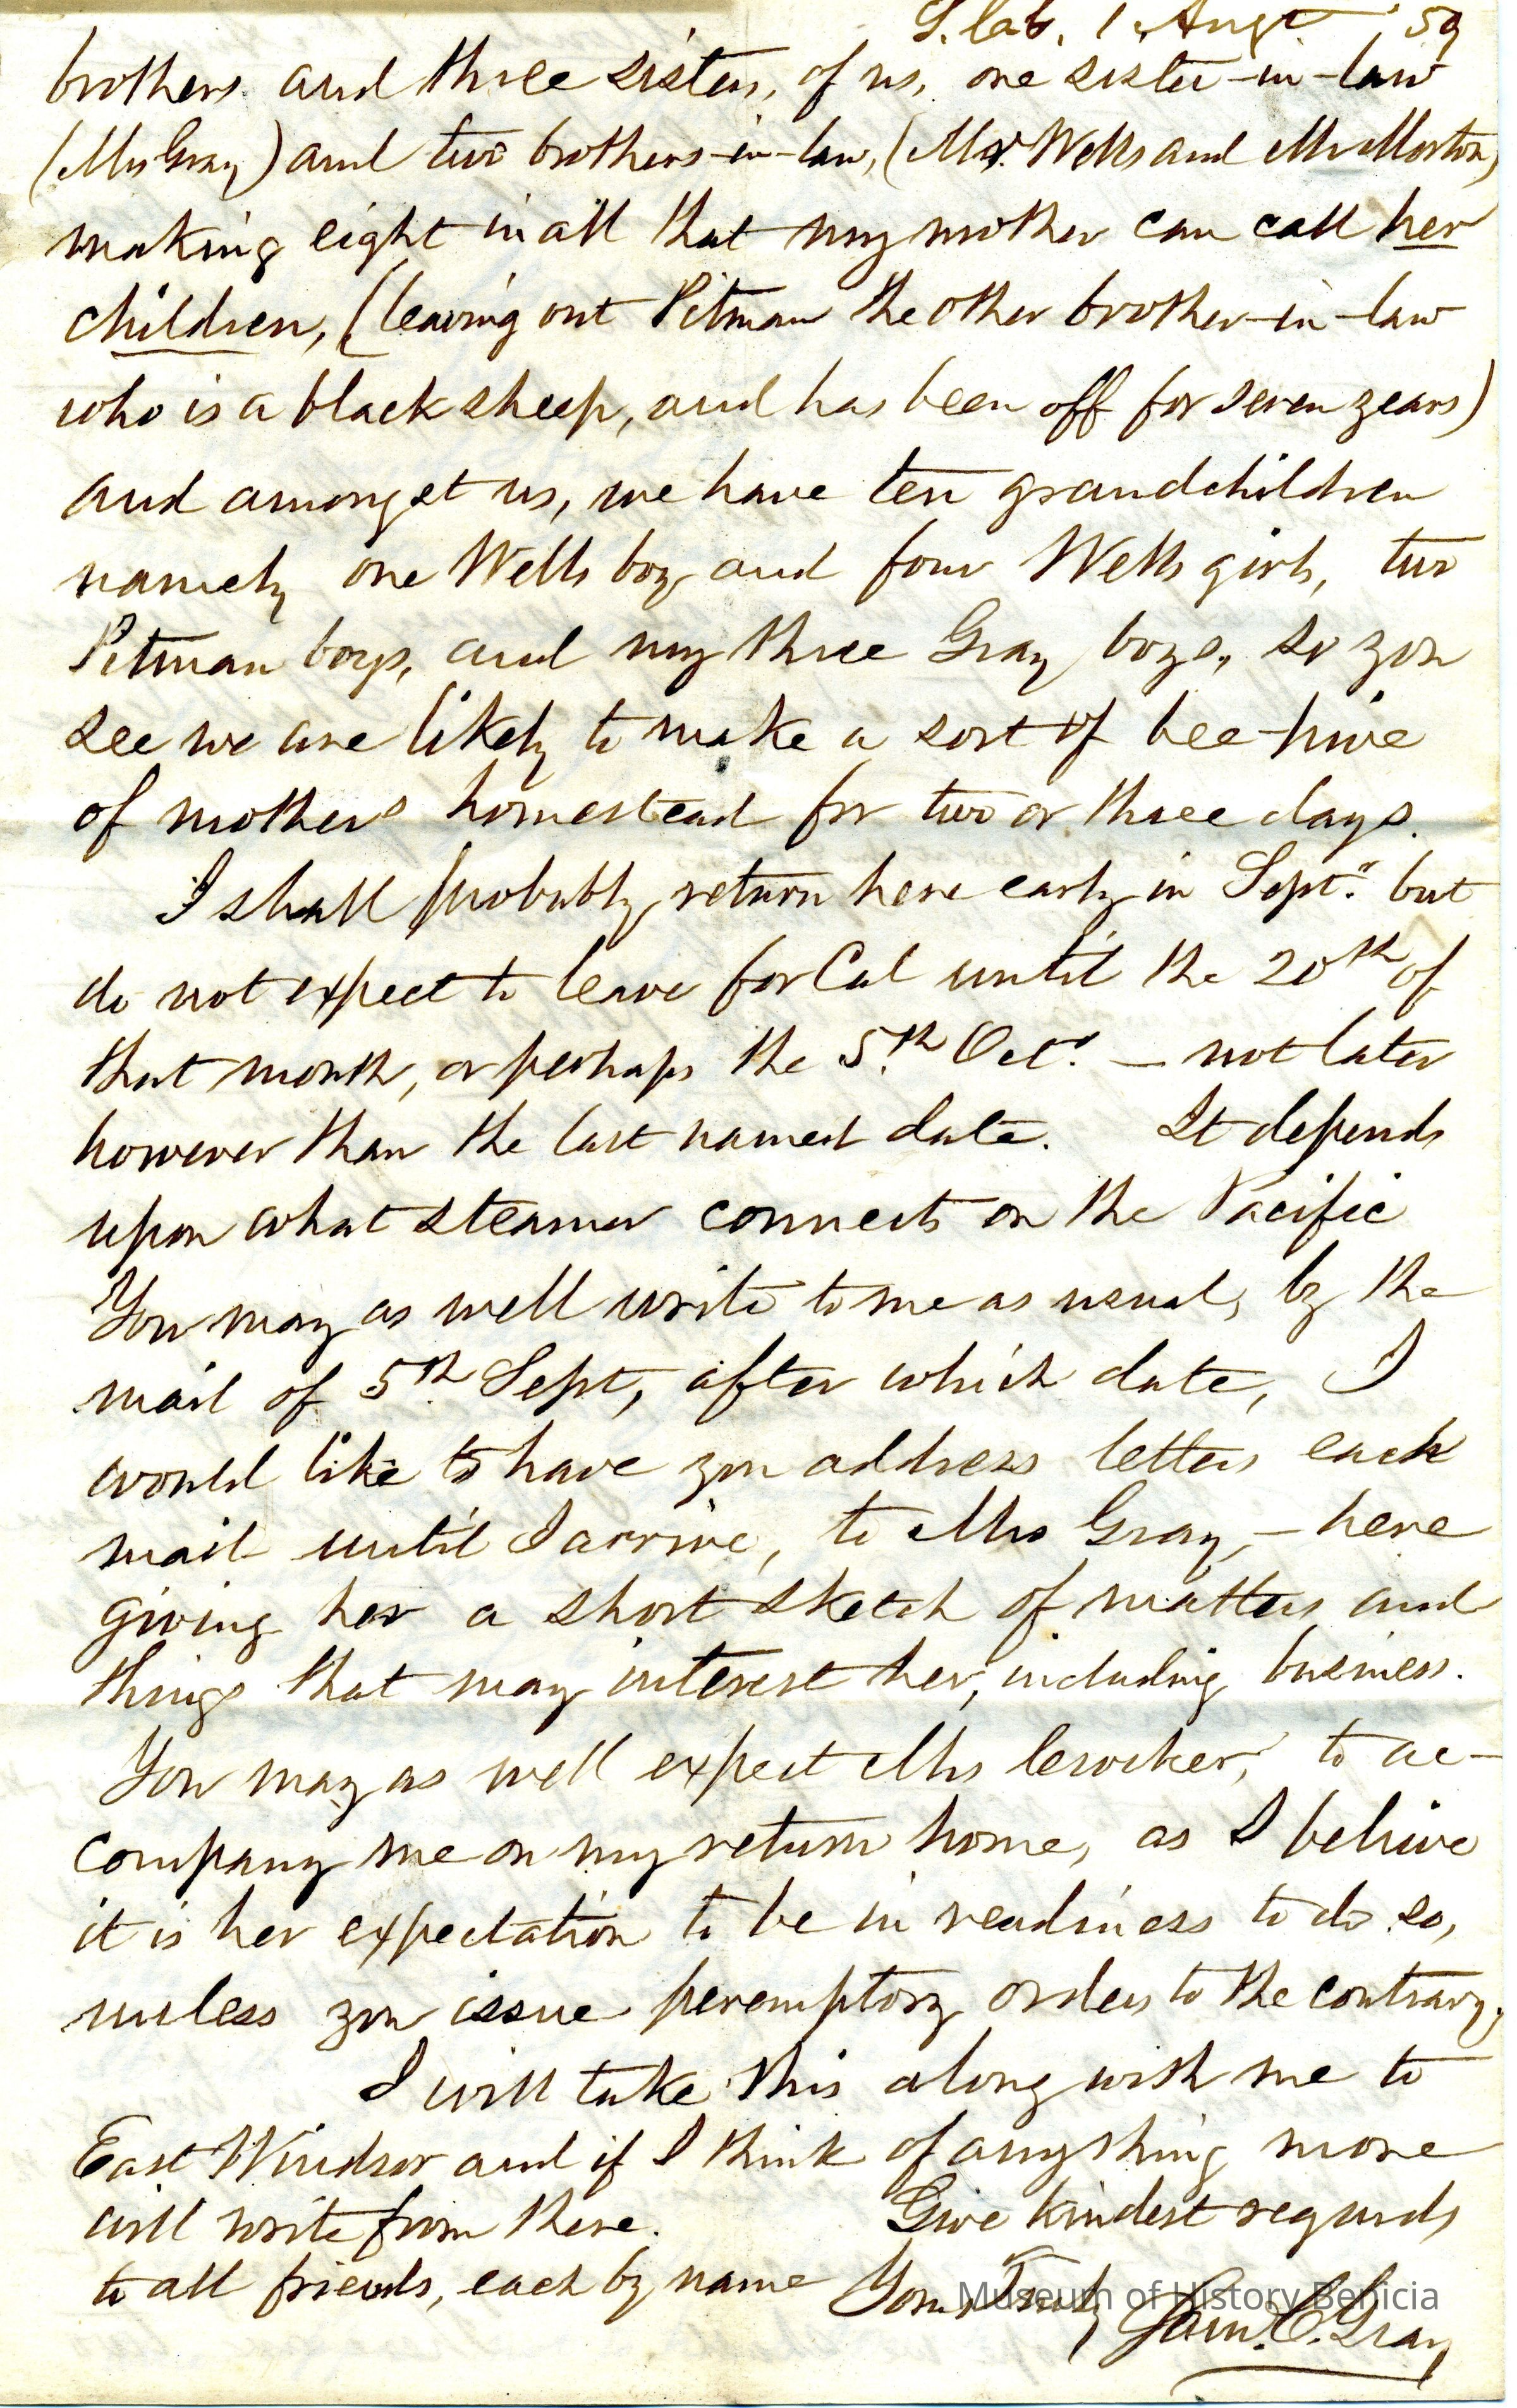 S. lab. 1 Augt 59
brothers and three sisters, of us, one sister-in-law
(Mrs Gray) and two brothers-in-law, (Mr. Wells and Mr Morton)
making eight in all that my mother can call her
children, (leaving out Pitman the other brother-in-law
who is a black sheep, and has been off for seven years)
and amongst us, we have ten grandchildren
namely one Wells boy and four Wells girls, two
Pitman boys, and my three Gray boys, so you
see we are likely to make a sort of bee-hive
of mothers homestead for two or three days.
I shall probably return here early in Sept. but
do not expect to leave for Cal until the 20th of
that month, or perhaps the 5th Oct. — not later
however than the last named date. It depends
upon what steamer connects on the Pacific
You may as well write to me as usual, by the
mail of 5th Sept, after which date, I
would like to have you address letters each
mail until I arrive, to Mrs Gray, — here
giving her a short sketch of matters and
things that may interest her, including business.
You may as well expect Mrs Crocker, to ac-
company me on my return home, as I believe
it is her expectation to be in readiness to do so,
unless you issue peremptory orders to the contrary.
I will take this along with me to
East Windsor and if I think of anything more
will write from there. Give kindest regards
to all friends, each by name Yours Truly
Sam. C. Gray
Museum of History Benicia